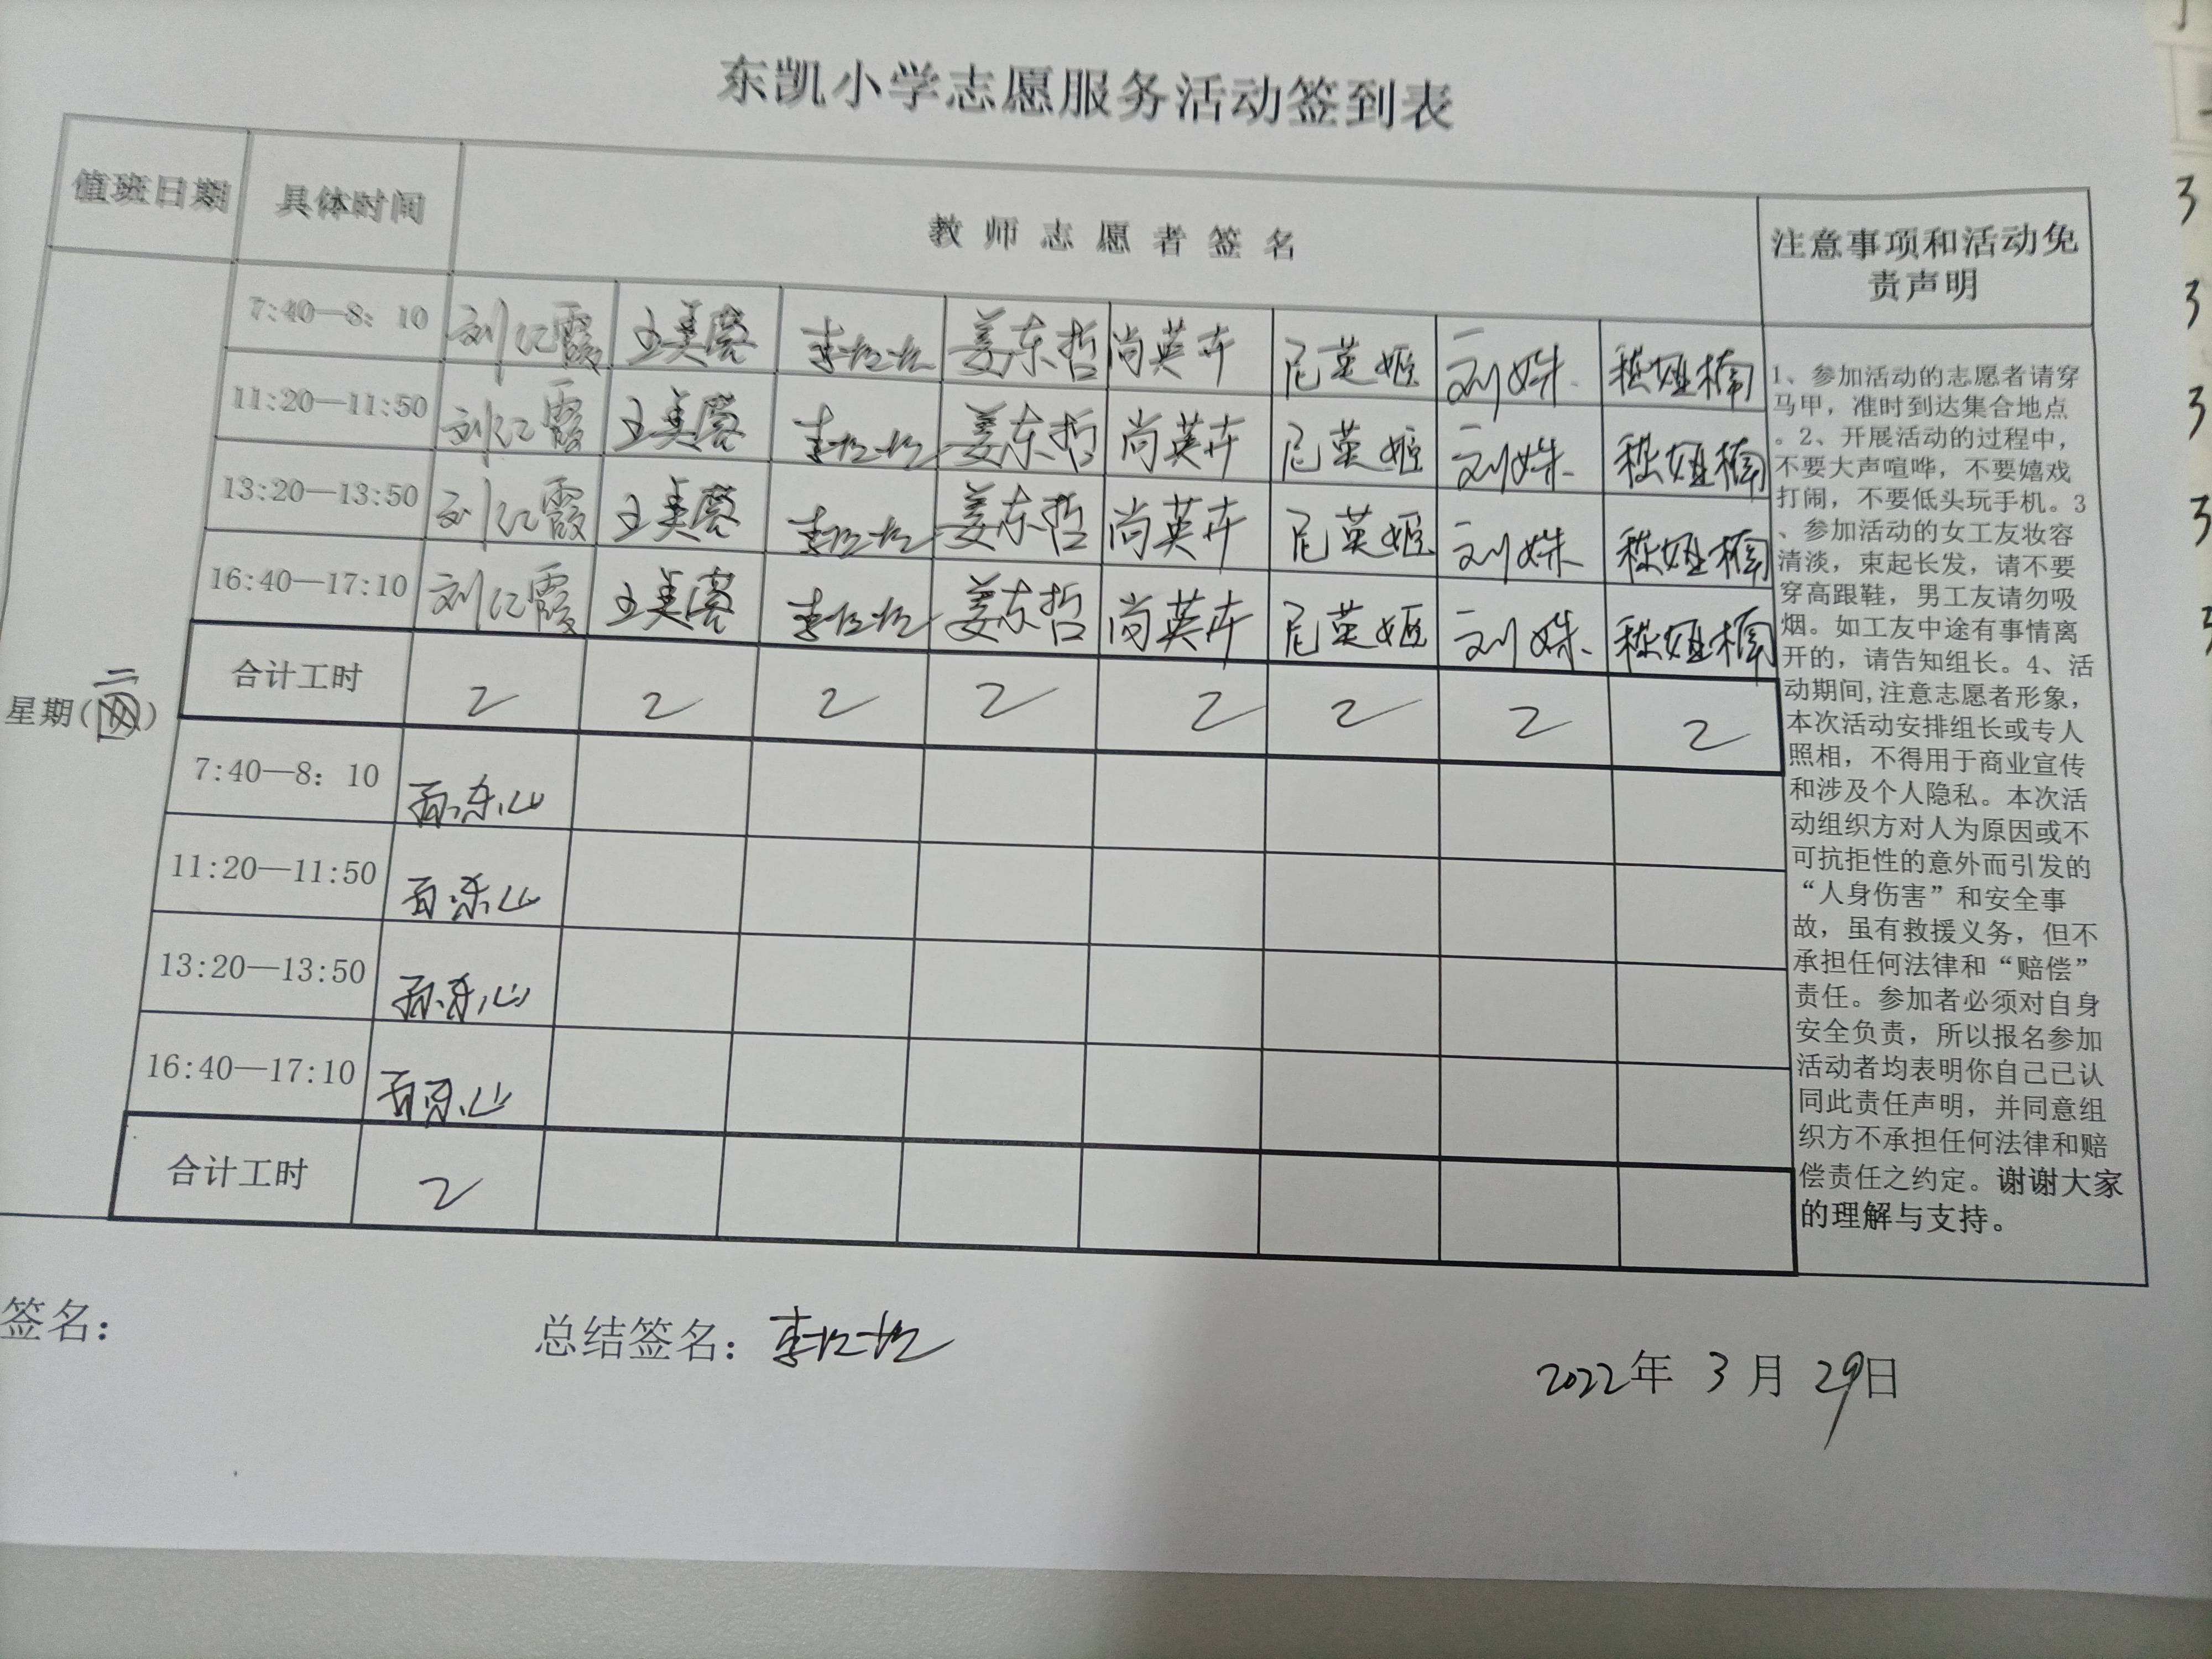 东凯小学志愿服务活动签到表
值班日期 具体时间 教师志愿者签名 注意事项和活动免
责声明
7:40—8：10 刘红霞 王美蓉 李 姜东哲 尚英卉 尼英姬 刘姝 楠
11:20—11:50 刘红霞 王美蓉 李 姜东哲 尚英卉 尼英姬 刘姝 楠
13:20—13:50 刘红霞 王美蓉 李 姜东哲 尚英卉 尼英姬 刘姝 楠
16:40—17:10 刘红霞 王美蓉 李 姜东哲 尚英卉 尼英姬 刘姝 楠
合计工时 2 2 2 2 2 2 2 2
星期(二)
7:40—8：10
11:20—11:50
13:20—13:50
16:40—17:10
合计工时 2
1、参加活动的志愿者请穿
马甲，准时到达集合地点
。2、开展活动的过程中，
不要大声喧哗，不要嬉戏
打闹，不要低头玩手机。3
、参加活动的女工友妆容
清淡，束起长发，请不要
穿高跟鞋，男工友请勿吸
烟。如工友中途有事情离
开的，请告知组长。4、活
动期间,注意志愿者形象，
本次活动安排组长或专人
照相，不得用于商业宣传
和涉及个人隐私。本次活
动组织方对人为原因或不
可抗拒性的意外而引发的
“人身伤害”和安全事
故，虽有救援义务，但不
承担任何法律和“赔偿”
责任。参加者必须对自身
安全负责，所以报名参加
活动者均表明你自己已认
同此责任声明，并同意组
织方不承担任何法律和赔
偿责任之约定。谢谢大家
的理解与支持。
签名： 总结签名：李
2022年 3月 29日